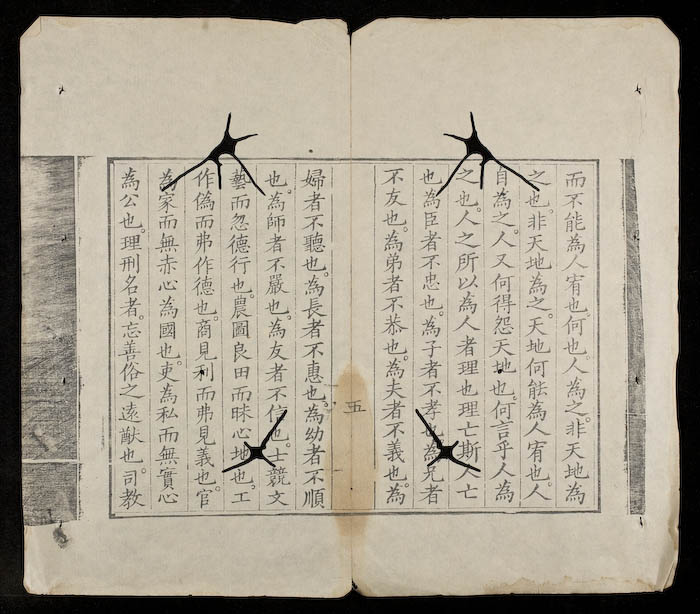 而不能為人宥也。何也。人為之。非天地為
之也。非天地為之。天地何能為人宥也。人
自為之。人又何得怨天地也。何言乎人為
之也。人之所以為人者理也理亡斯人亡
也為臣者不忠也。為子者不孝也為兄者
不友也。為弟者不恭也。為夫者不義也。為
五
婦者不聽也。為長者不惠也。為幼者不順
也。為師者不嚴也。為友者不信也。士競文
藝而忽德行也。農圖良田而昧心地也。工
作偽而弗作德也。商見利而弗見義也。官
為家而無赤心為國也。吏為私而無實心
為公也。理刑名者。忘善俗之遠猷也。司教